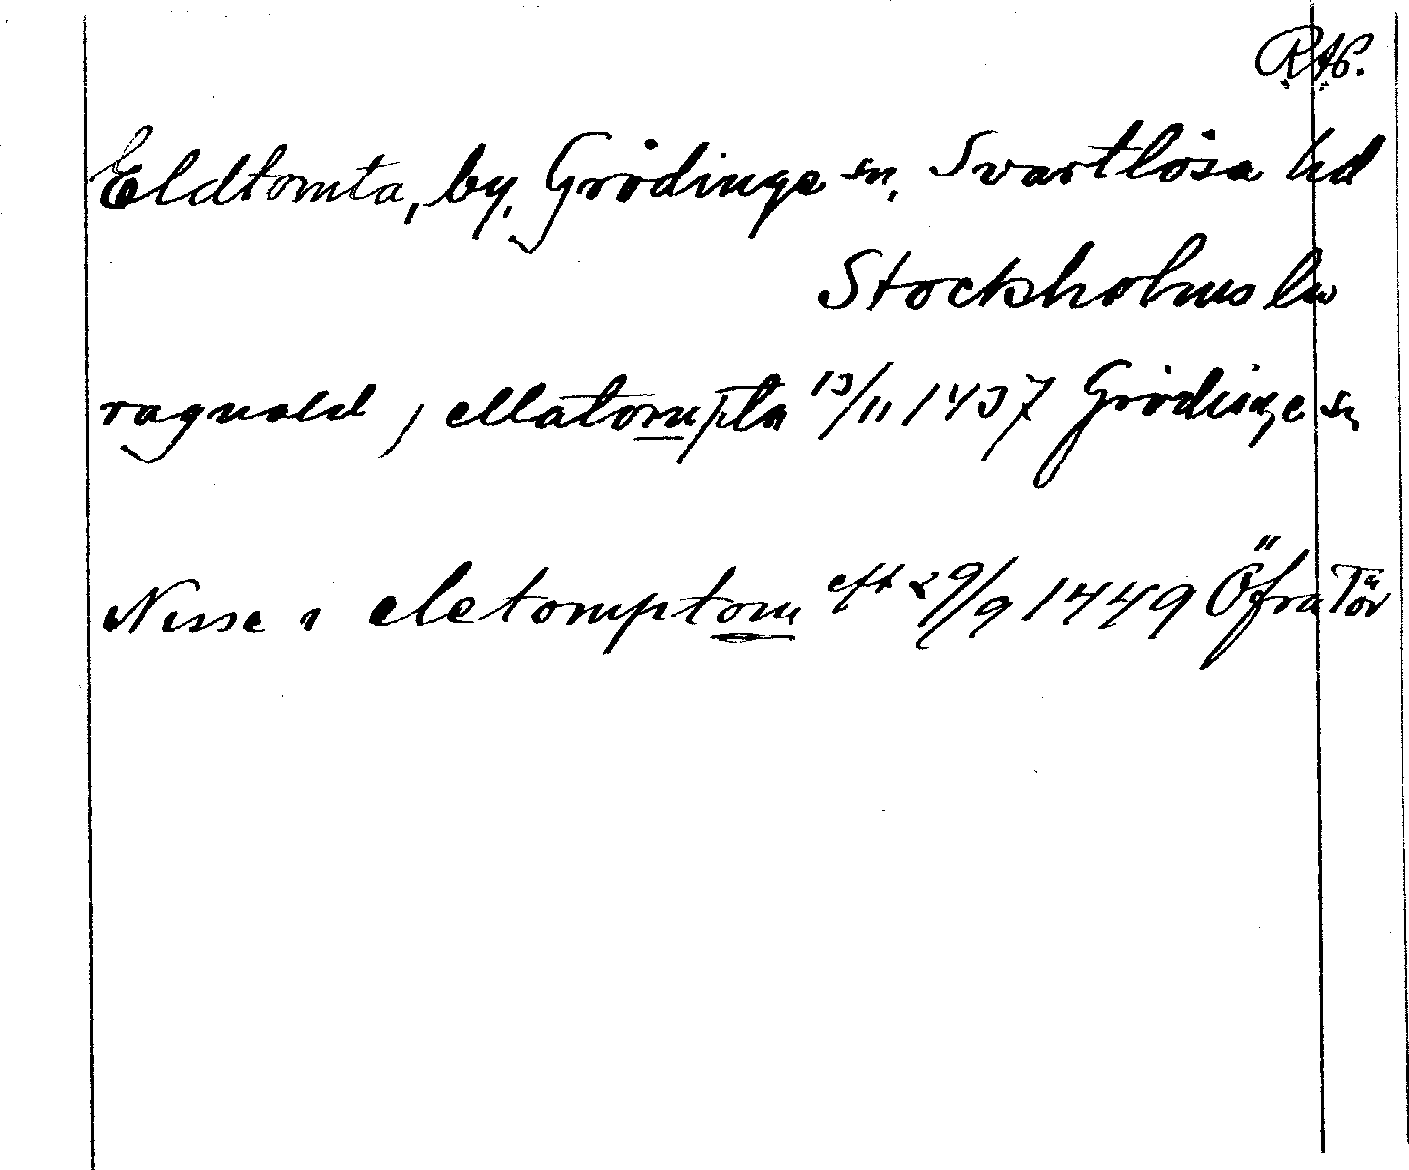 RAP.
Eldtomta, by, Grödinge sn, Svartlösa hd
Stockholms län
raguald j ellatompta 13/11 1437 Grödinge sn
Nisse i eletomptom eft 29/9 1449 Öfra Tör